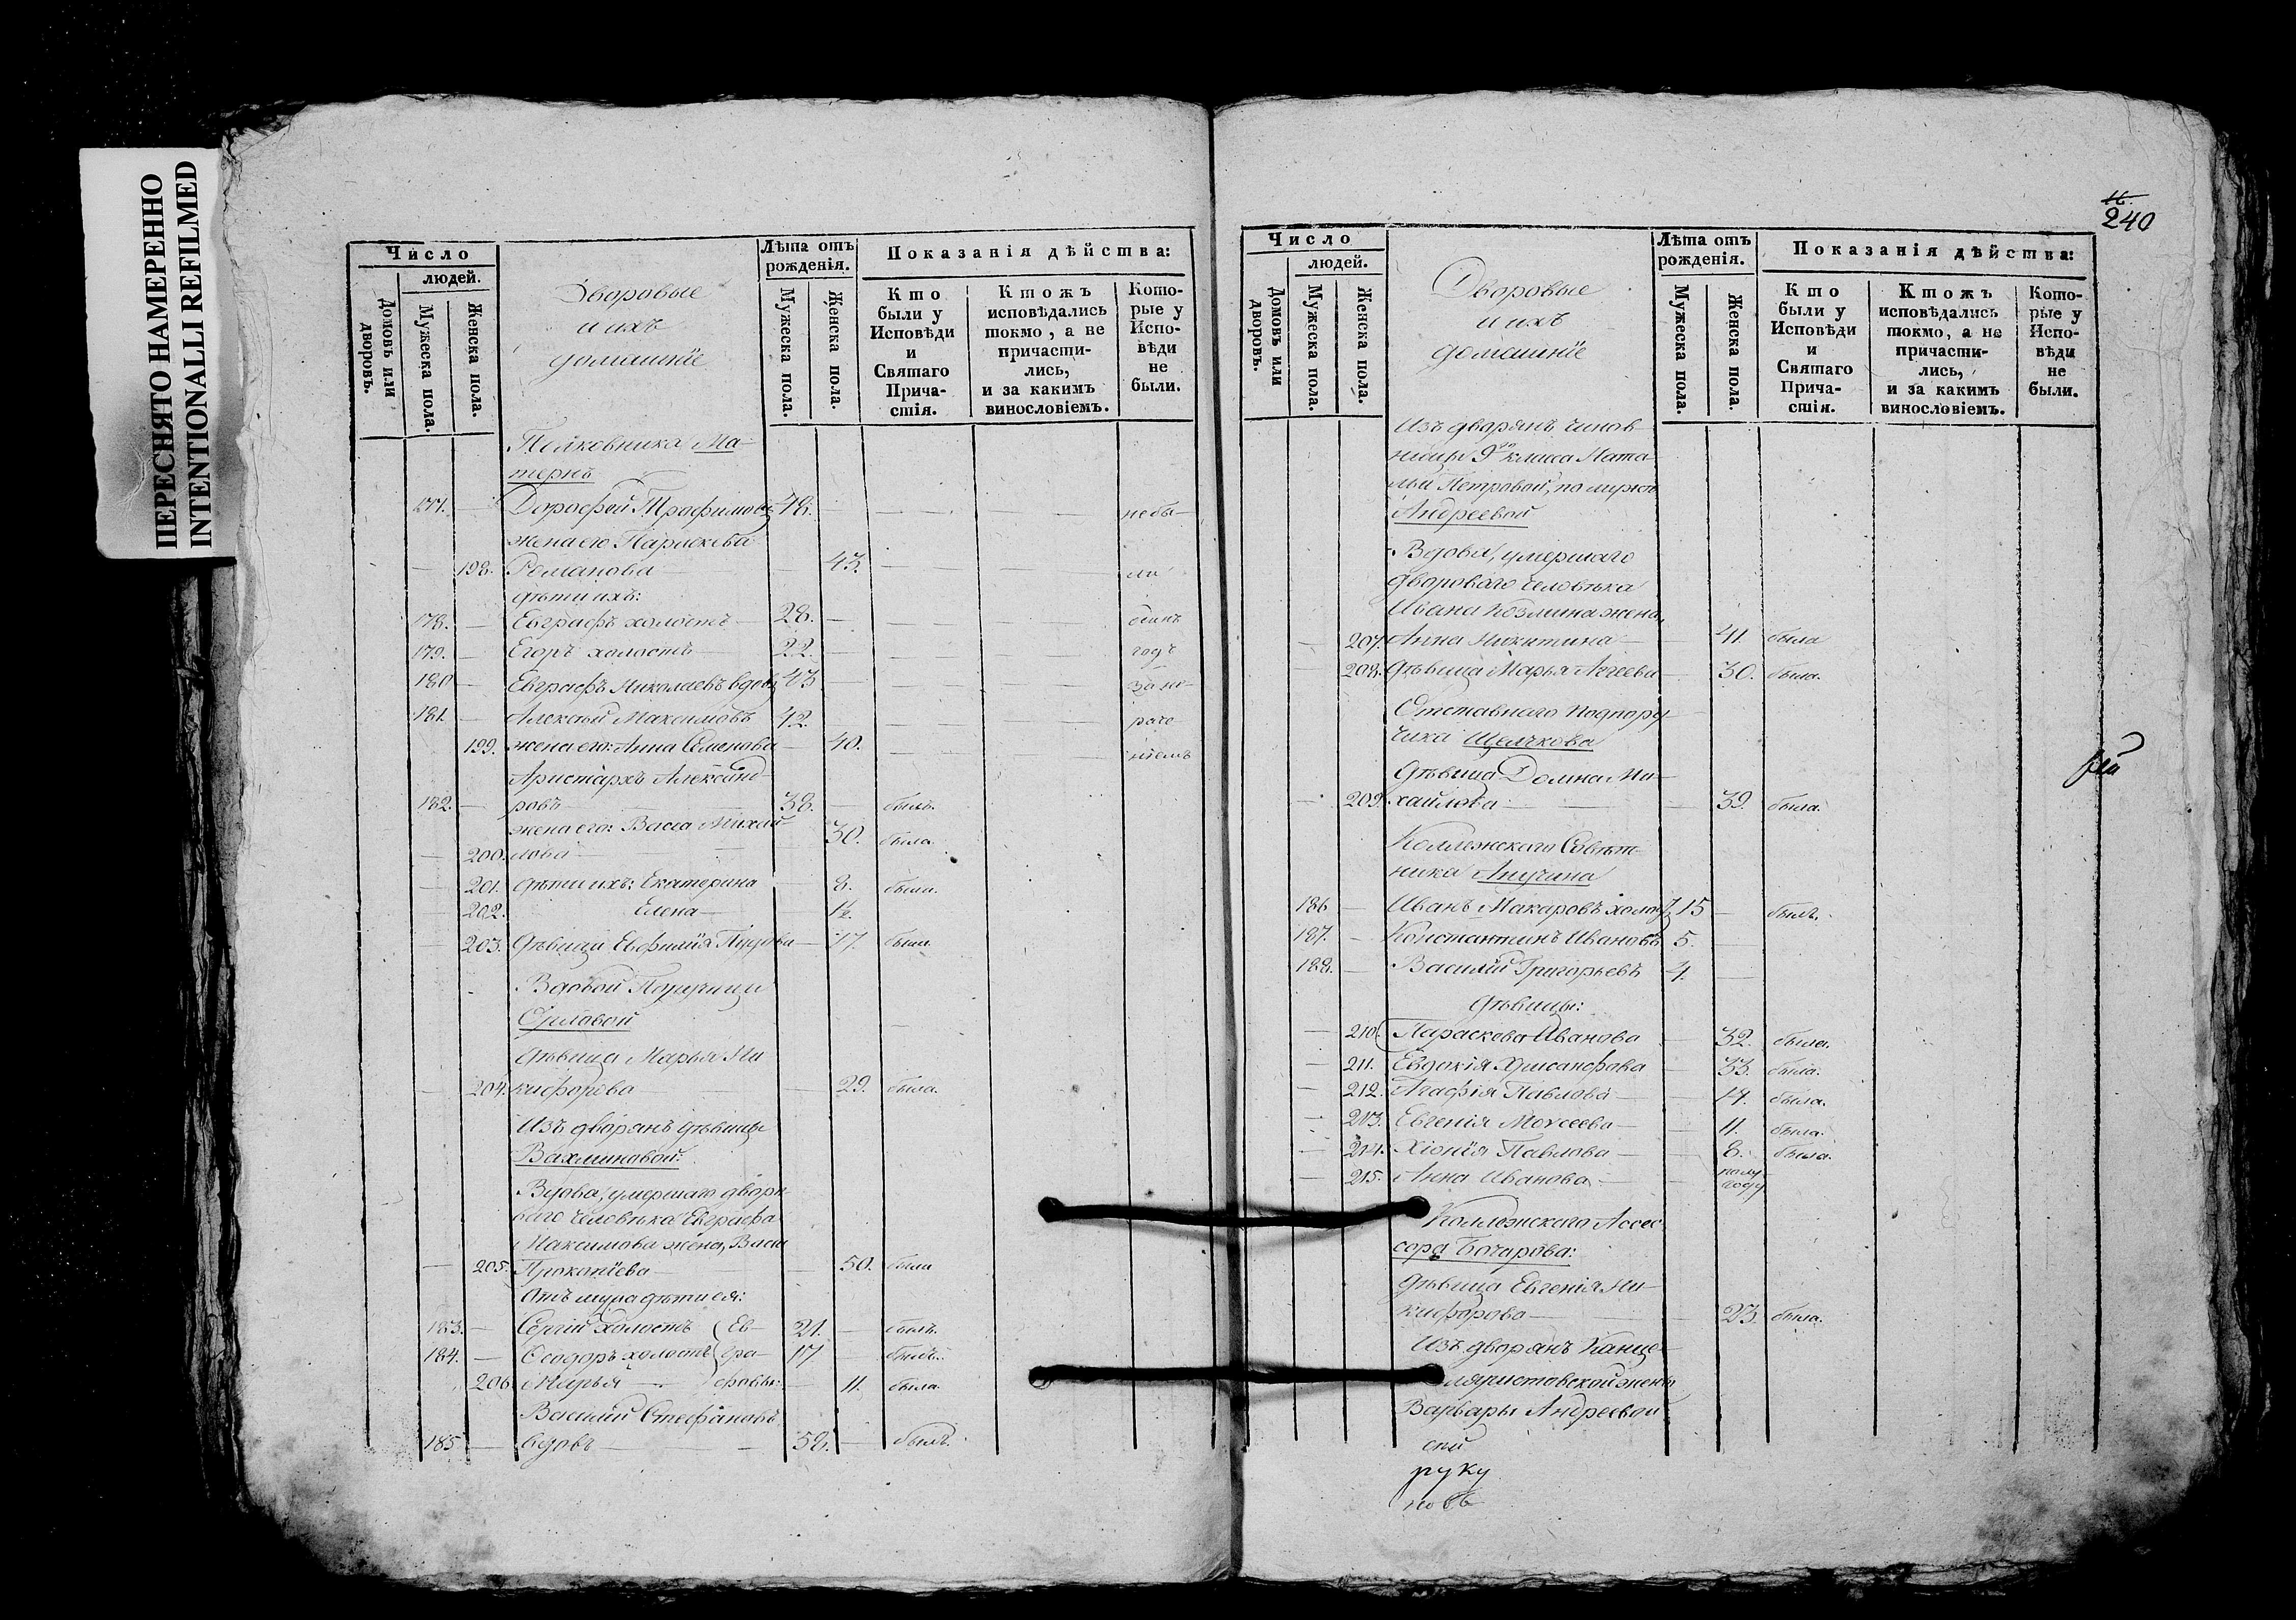 ПЕРЕСНЯТО НАМЕРЕННО
INTENTIONALLI REFILMED
Число
людей.
Домовъ или дворовъ.
Мужеска пола.
Женска пола.
Дворовые
и ихъ
домашніе
Лѣта отъ рожденія.
Мужеска пола.
Женска пола.
Показанія дѣйства:
Кто были у Исповѣди и Святаго Прича-стія.
Ктожъ исповѣдались токмо, а не причасти-лись, и за какимъ винословіемъ.
Кото-рые у Испо-вѣди не были.
Полковника Ма-
тернъ
177. — Дорофей Трофимовъ 48. — — — не бы-
жена его Параскева
— 198. Романова — 43. — — ли
дѣти ихъ:
178. — Евграфъ холостъ 28. — — —
179. — Егоръ холостъ 22. — — — годъ
180 — Евграфъ Николаевъ вдовъ 43 — — — за не-
181. — Алексѣй Максимовъ 42. — — — раче-
199. жена его: Анна Семенова — 40. — — ніемъ
Аристархъ Александ-
182. — ровъ — 38. — былъ.
жена его: Васса Михай-
— 200. лова — 30. была.
— 201. дѣти ихъ: Екатерина — 8. была.
— 202. Елена — 1½.
— 203. дѣвица Евфимія — 17. была.
Вдовой Порутчицы
Орловой
дѣвица Марья Ни
— 204. кифорова — 29. была.
Изъ дворянъ дѣвицы
Вахминовой:
Вдова, умершаго дворо-
ваго человѣка Евграфа
Максимова жена, Васса
— 205. Прокопіева — 50. была
Отъ мужа дѣти ея:
183. — Сергій холостъ (Ев- 21. — былъ.
184. — Ѳеодоръ холостъ (гра- 17 — былъ.
206. Марья — фовы: — 11. была.
Василій Стефановъ
185 — вдовъ — 58. — былъ.
16.
240
Число
людей.
Домовъ или дворовъ.
Мужеска пола.
Женска пола.
Дворовые
и ихъ
домашніе
Лѣта отъ рожденія.
Мужеска пола.
Женска пола.
Показанія дѣйства:
Кто были у Исповѣди и Святаго Прича-стія.
Ктожъ исповѣдались токмо, а не причасти-лись, и за какимъ винословіемъ.
Кото-рые у Испо-вѣди не были.
Изъ дворянъ, чинов-
ницы 9го класса Ната-
льи Петровой, по мужѣ
Андреевой
Вдова, умершаго
двороваго человѣка
Ивана Козмина жена,
— 207. Анна Никитина — 41. была
— 208. дѣвица Марья Агеева — 30. была.
Отставнаго Подпору-
чика Щелчкова
дѣвица Домна Ми-
— 209. хайлова — 39. была.
Коллежскаго Совѣт-
ника Анучина
186 — Иванъ Макаровъ холостъ 15 — былъ.
187. — Константинъ Ивановъ 5. —
188. — Василій Григорьевъ 4. —
дѣвицы:
— 210. Параскева Иванова — 32. была.
— 211. Евдокія Хрисанфова — 33. была.
— 212. Агафія Павлова — 14. была.
— 213. Евгенія Моѵсеева — 11. была.
— 214. Хіонія Павлова — 8. была.
— 215. Анна Иванова — полу году
Коллежскаго Ассес-
сора Бочарова:
дѣвица Евгенія Ни-
кифорова — 23. была.
Изъ дворянъ Канце-
ляристовской жены
Варвары Андреевой
руку